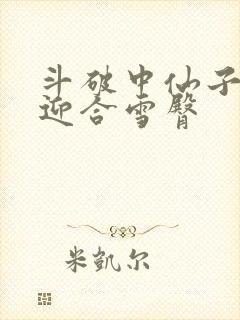 斗破中仙子
迎合雪臀
米凯尔